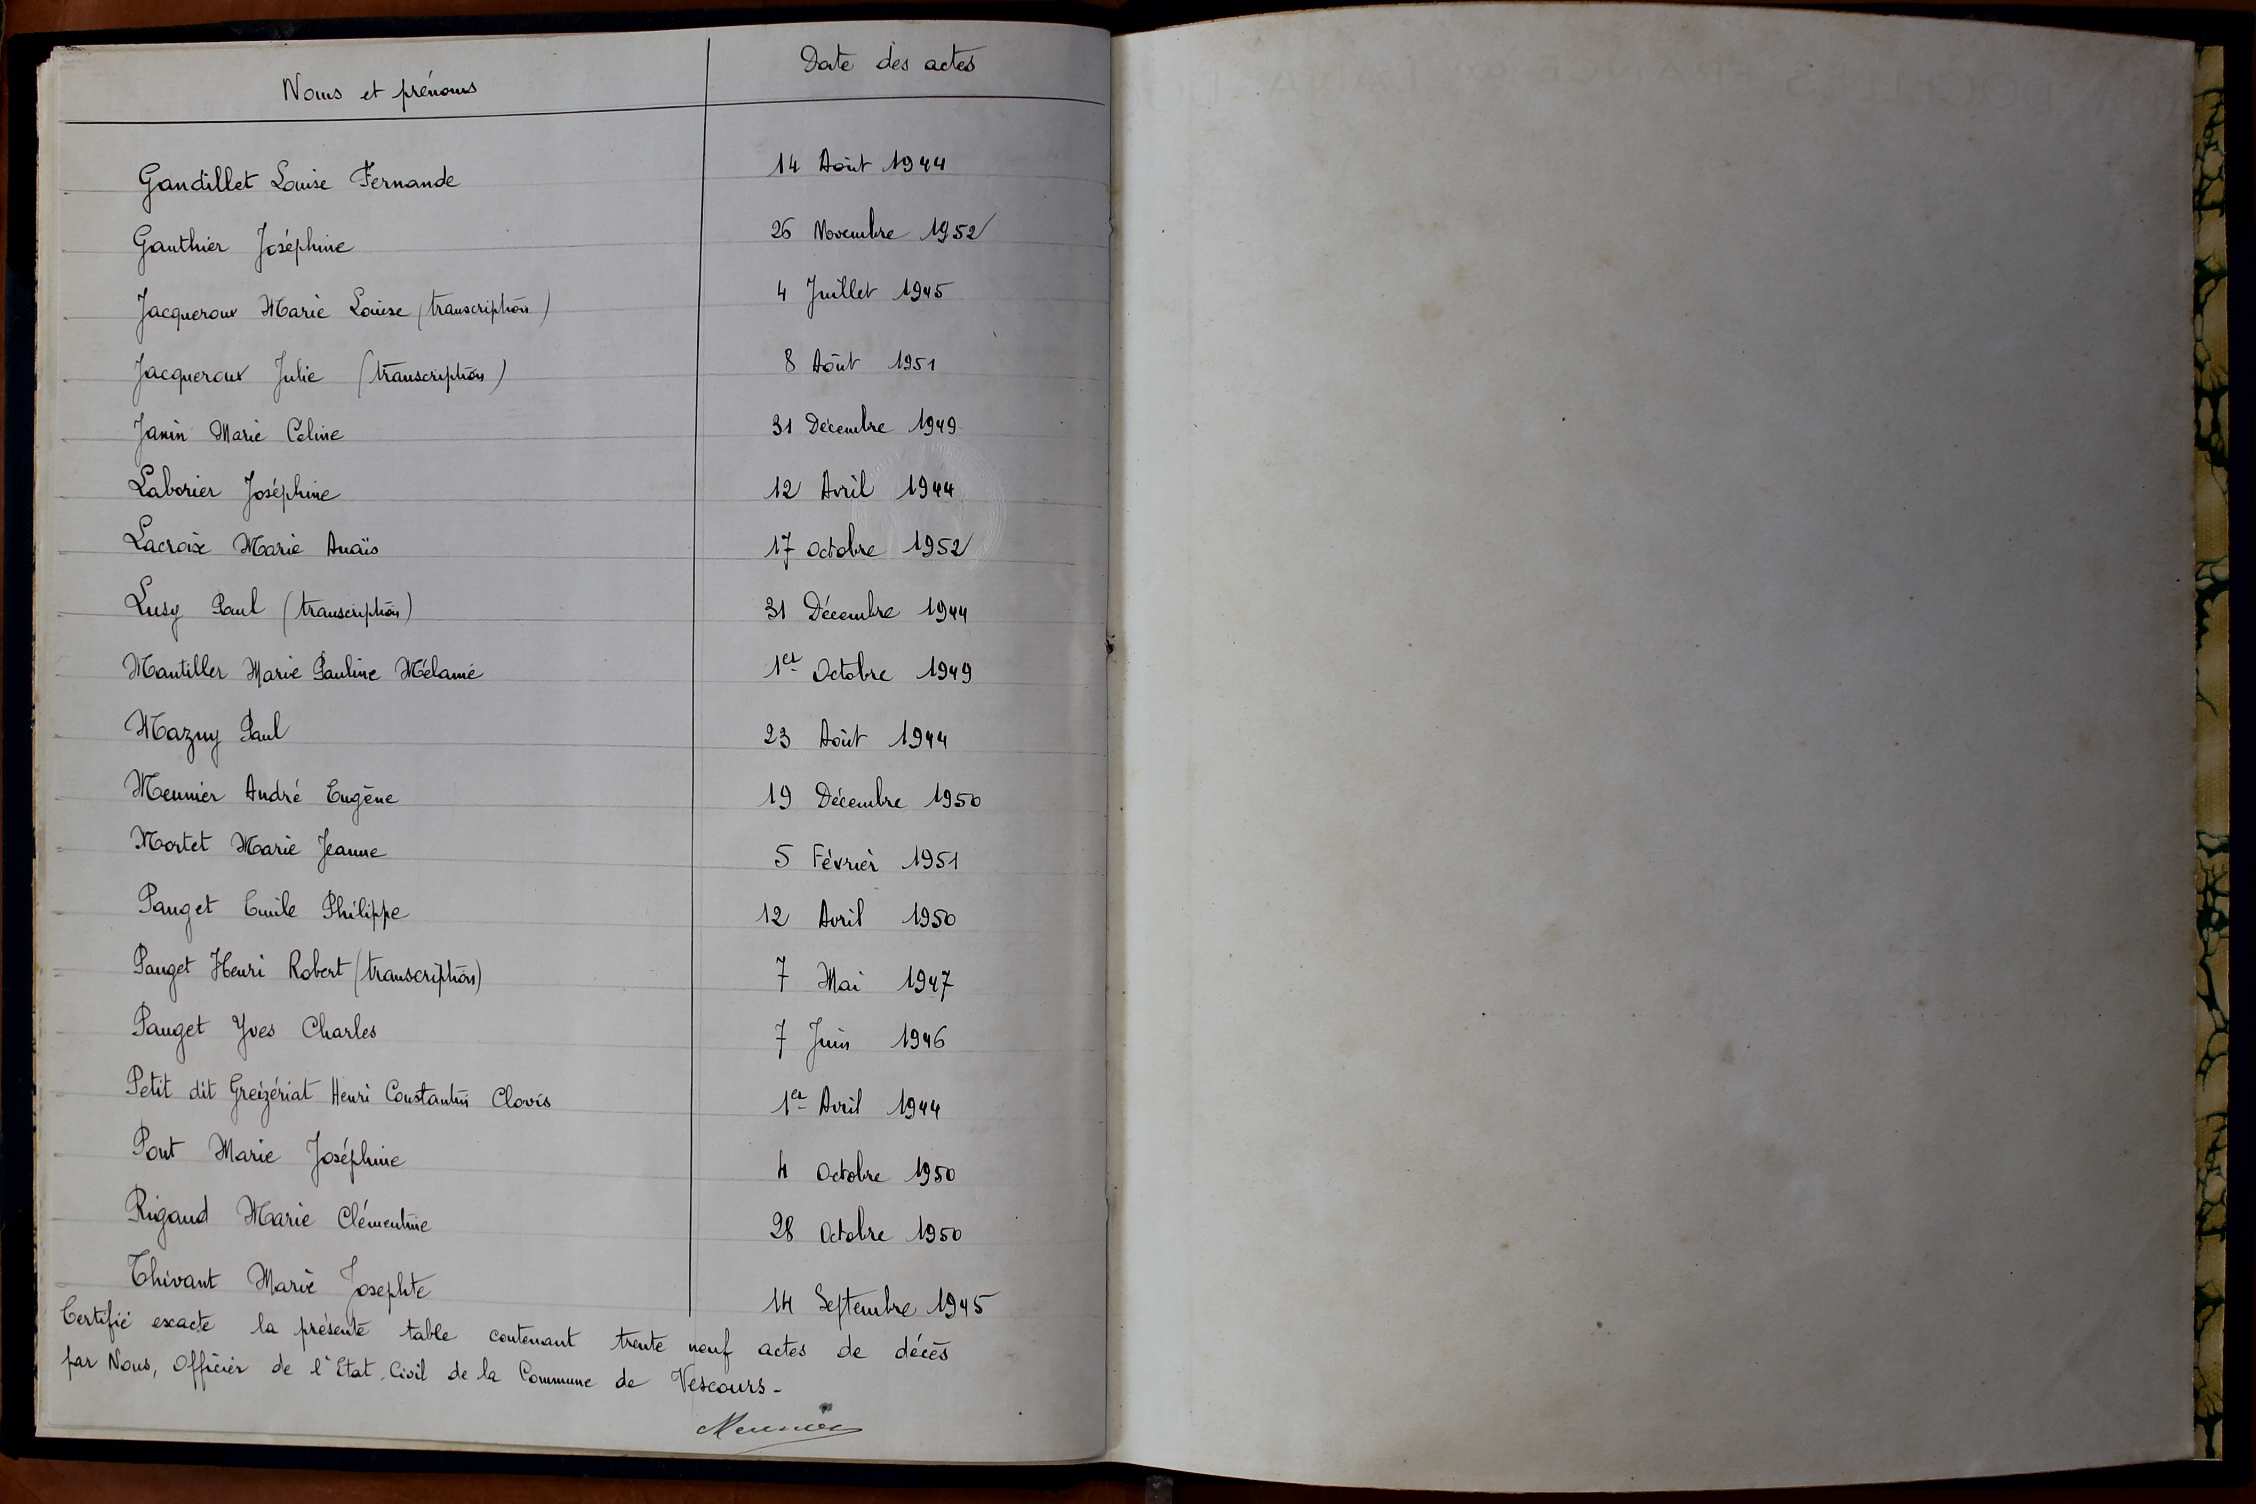 Noms et prénoms Date des actes
Gandillet Louise Fernande 14 Août 1944
Gauthier Joséphine 26 Novembre 1952
Jacqueroux Marie Louise (transcription) 4 Juillet 1945
Jacqueroux Julie (transcription) 8 Août 1951
Janin Marie Céline 31 Décembre 1949
Laborier Joséphine 12 Avril 1944
Lacroix Marie Anaïs 17 octobre 1952
Lusy Paul (transcription) 31 Décembre 1944
Mantiller Marie Pauline Mélanie 1er Octobre 1949
Mazuy Paul 23 Août 1944
Meunier André Eugène 19 Décembre 1950
Mortet Marie Jeanne 5 Février 1951
Pauget Emile Philippe 12 Avril 1950
Pauget Henri Robert (transcription) 7 Mai 1947
Pauget Yves Charles 7 Juin 1946
Petit dit Greizériat Henri Constantin Clovis 1er Avril 1944
Pont Marie Joséphine 4 Octobre 1950
Rigaud Marie Clémentine 28 Octobre 1950
Thivant Marie Josephte 14 Septembre 1945
Certifié exacte la présente table contenant trente neuf actes de décès
par Nous, Officier de l'Etat Civil de la Commune de Vescours -
Meunier